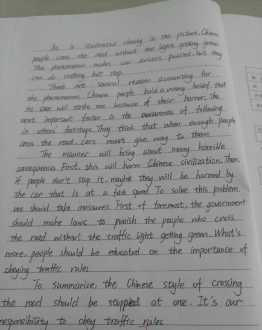 As is illustrated clearly in the picture, Chinese
people cross the road without the lights getting green
This phenomenon makes car drivers puzzled, but they
can do nothing but stop.
There are several reasons accounting for
the phenomenon. Chinese people hold a wrong belief that
no cars will strike me because of their horrer. The
most important factor is the awareness of following
in others' footsteps. They think that when enough people
cross the road, cars must give way to them.
The manner will bring about many horrible
consequences. First, this will harm Chinese civilization. Then,
if people don't stop it, maybe they will be harmed by
the car that is at a fast speed. To solve this problem,
we should take measures. First of foremost, the government
should make laws to punish the people who cross
the road without the traffic light getting green. What's
more, people should be educated on the importance of
obeying traffic rules.
To summarize, the Chinese style of crossing
the road should be stopped at one. It's our
responsibility to obey traffic rules